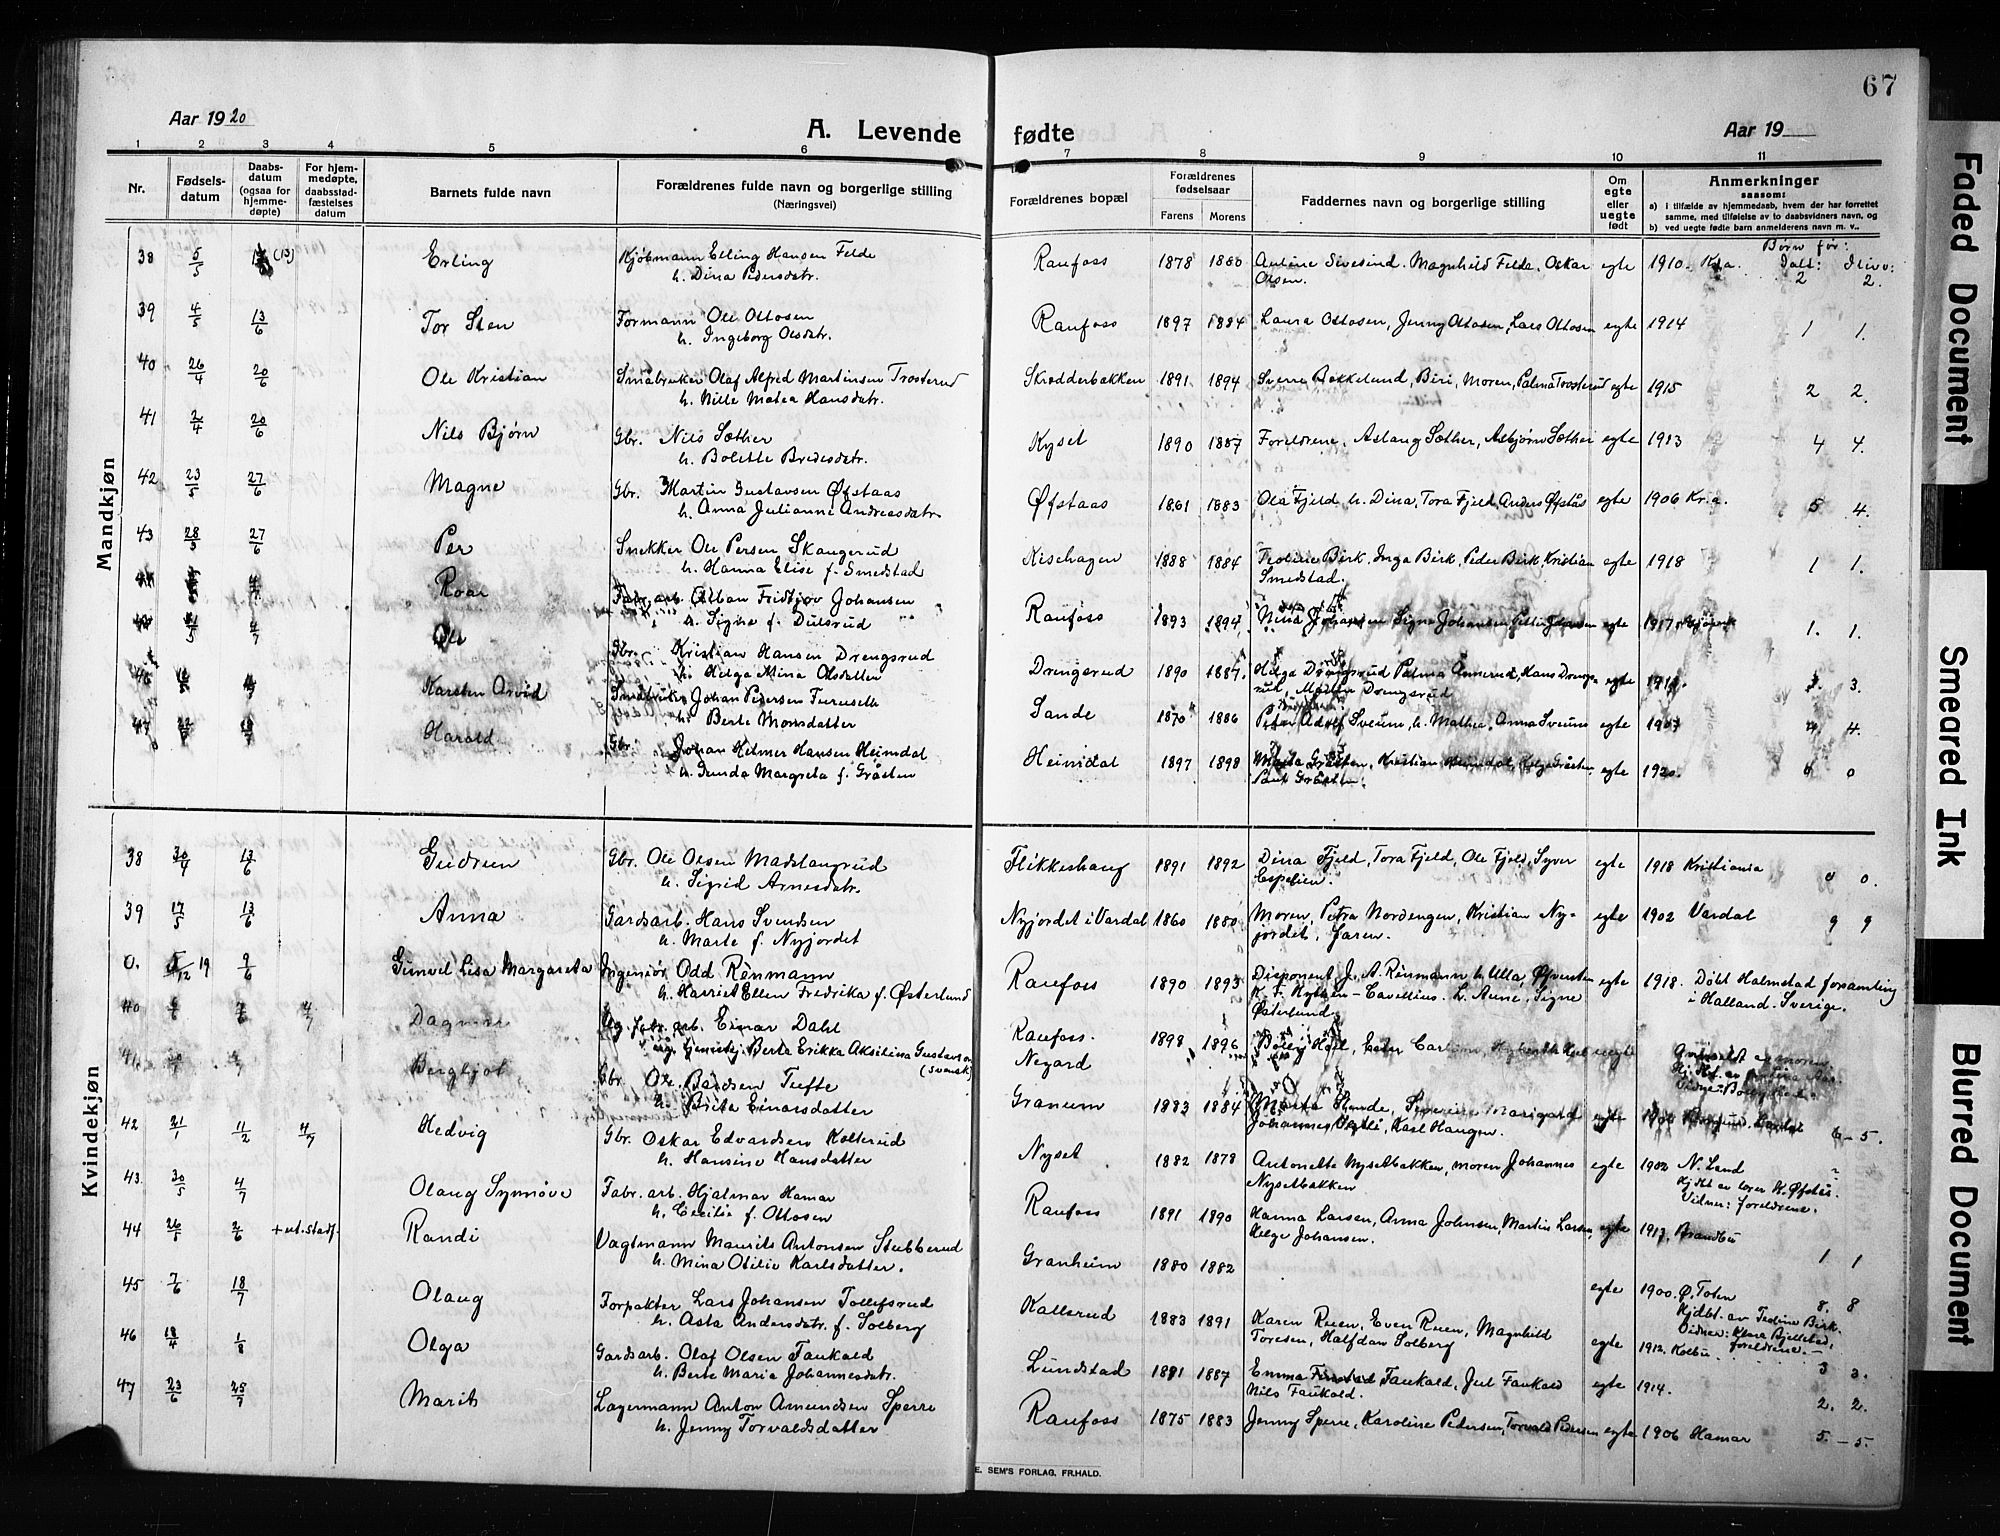 67
Aar 1920
A. Levende fødte
Aar 19
1 2 3 4 5 6 7 8 9 10 11
Nr.
Fødsels-
datum
Daabs-
datum
(ogsaa for
hjemme-
døpte)
For hjem-
medøpte,
daabsstad-
fæstelses
datum
Barnets fulde navn
Forældrenes fulde navn og borgerlige stilling
(Næringsvei)
Forældrenes bopæl
Forældrenes
fødselsaar
Farens Morens
Faddernes navn og borgerlige stilling
Om
egte
eller
uegte
født
Anmerkninger
saasom:
a) i tilfælde av hjemmedaab, hvem der har forrettet
samme, med tilføielse av to daabsvidners navn, og
b) ved uegte fødte barn anmelderens navn m. v..
Mandkjøn
Børn før:
Ialt: Ilive:
38 5/5 (13) Erling Kjøbmann Erling Hansen Felde Raufoss 1878 1880 Antine Sivesind, Magnhild Felde, Oskar egte 1910. Kr.a. 2 2.
h. Dina Pedersdatr. Olsen.
39 4/5 13/6 Tor Sten Formann Ole Ottosen Raufoss 1897 1894 Laura Ottosen, Jenny Ottosen, Lars Ottosen egte 1914 1 1.
h. Ingeborg Olsdatr.
40 26/4 20/6 Ole Kristian Småbruker Olaf Alfred Martinsen Trosterud Skrædderbakken 1891 1894 Sverre Bakkelund, Biri, Moren, Palma Trosterud egte 1915 2 2.
h. Nille Matea Hansdatr.
41 2/4 20/6 Nils Bjørn Gbr. Nils Sæther Kyset 1890 1887 Foreldrene, Aslaug Sæther, Asbjørn Sæther egte 1913 4 4.
h. Bolette Bredesdatr.
42 23/5 27/6 Magne Gbr. Martin Gustavsen Øfstaas Øfstaas 1861 1883 Ola Fjeld h. Dina, Tora Fjeld, Anders Øfstås egte 1906 Kr.a. 5 4.
h. Anna Julianne Andreasdatr.
43 28/3 27/6 Per Snekker Ole Persen Skangerud Kisehagen 1888 1884 Teoline Birk, Inga Birk, Peder Birk, Kristian egte 1918 1 1.
h. Hanna Elise f. Smedstad Smedstad.
Roar Fabr. arb. Alban Fridtjov Johansen Raufoss 1893 1894 Nina Johansen Signe Johansen, Johansen egte 1917 1. 1.
h. Signe f. Dulsrud
Ole Gbr. Kristian Hansen Drengsrud Drengsrud 1890 1887. Helga Drengsrud Palma Annerud, Hans Dreng- egte 3.
h. Helga Mina Olsdatter srud, Drengsrud
46 Karsten Arvid Småbruker Johan Pedersen Sande 1870 1886 Peter Adolf Sveum, h. Mathea, Anna Sveum egte 1907 4 4.
h. Berte Monsdatter
47 Harald Gbr. Johan Hilmer Hansen Heimdal Heimdal 1897 1898 Marta Gråsten, Kristian Heimdal, Helga Gråsten, egte 1920. 0 0
h. Gunda Margreta f. Gråsten Paul Gråsten.
Kvindekjøn
38 30/4 13/6 Gudrun Gbr. Ole Olsen Madslangrud Flikkeshaug 1891 1892 Dina Fjeld, Tora Fjeld, Ole Fjeld, Syver egte 1918 Kristiania 0 0.
h. Sigrid Arnesdatr. Espelien.
39 17/5 13/6 Anna Gardsarb. Hans Svendsen Nyjordet i Vardal 1860 1880 Moren, Petra Nordengen, Kristian Ny- egte 1902 Vardal 9 9
h. Marte f. Nyjordet jordet, faren.
0. /12 19 9/6 Gunvel Lisa Margareta Ingeniør Odd Rènmann Raufoss 1890 1893 Disponent J. A. Rènmann h. Ulla, Øfverste egte 1918. Døbt Halmstad forsamling
h. Harriet Ellen Fredrika f. Østerlund K. F. Hyltén-Cavellius. h. Anne, Signe i Halland. Sverige.
Østerlund.
40 Dagmar Ug. fabr. arb. Einar Dahl Raufoss. 1898 1896 Ester Carlsen, uegte
ug. tjenestej. Berta Erikka Aksilina Gustavson Negard
(svensk)
41 Bergljot Gbr. Ole Bardsen Tufte Graneum 1883 1884 Marta egte 6 - 5.
h. Brita Einarsdatter Johannes Karl Haugen.
42 21/1 11/2 4/7 Hedvig Gbr. Oskar Edvardsen Kolterud Nyset 1882 1878 Antonette Nysetbakken, moren, Johannes egte 1902 N. Land
h. Hansine Hansdatter Nysetbakken Hjdbt av lærer K. Øfstås.
Vidner: foreldrene.
43. 30/5 4/7 Olaug Synnøve Fabr. arb. Hjalmar Hamar Raufoss 1891 1890 Hanna Larsen, Anna Johnsen, Martin Larsen, egte 1913. Brandbu 1 1
h. Cecilie f. Ottosen Helge Johansen.
44 26/ 2/6 + ut. stadf. Randi Vagtmann Maurits Antonsen Stubberud Granheim 1880 1882 egte 1900. Ø. Toten 8. 8
h. Mina Otilie Karlsdatter. Hjdbt. av Teoline Birk.
Vidner: Klara Bjellstad, foreldrene. -
45 7/6 18/7 Olaug Forpakter Lars Johansen Tollefsrud Kallerud 1883 1891 Karen Ruen, Even Ruen, Magnhild egte 1912. Kolbu 3 3.
h. Asta Andersdatr. f. Solberg Toresen, Halfdan Solberg
46 18/4 1/8 Olga Gardsarb. Olaf Olsen Faukald Lundstad 1881 1887 Emma Faukald, Jul Faukald egte 1914. 2. 2.
h. Berte Maria Johannesdatr. Nils Faukald.
47 23/6 25/7 Marit Lagermann Anton Amundsen Sperre Raufoss 1875 1883 Jenny Sperre, Karoline Pedersen, Torvald Pedersen egte 1906 Hamar 5. - 5.
h. Jenny Torvaldsdatter
E. SEM'S FORLAG, FR.HALD.
Faded Document
Smeared Ink
Blurred Document